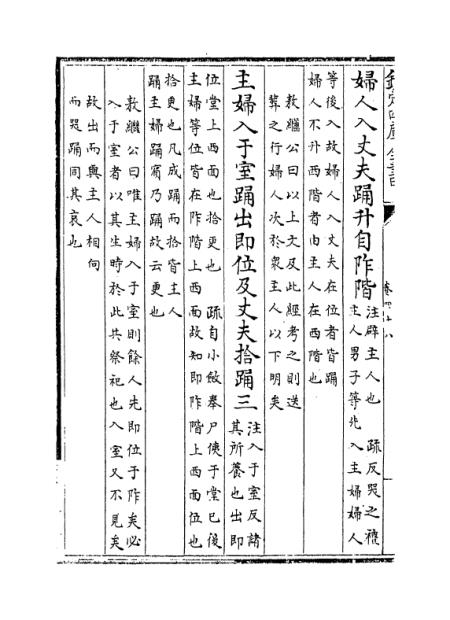 欽定四庫全書
卷四十八
婦人入丈夫踊升自阼階
注辟主人也　疏反哭之禮
主人男子等先入主婦婦人
等後入故婦人入丈夫在位者皆踊
婦人不升西階者由主人在西階也
敖繼公曰以上文及此經考之則送
葬之行婦人次於衆主人以下明矣
主婦入于室踊出即位及丈夫拾踊三
注入于室反諸
其所養也出即
位堂上西面也拾更也　疏自小斂奉尸侇于堂已後
主婦等位皆在阼階上西面故知即阼階上西面位也
拾更也凡成踊而拾皆主人
踊主婦踊賓乃踊故云更也
敖繼公曰唯主婦入于室則餘人先即位于阼矣必
入于室者以其生時於此共祭祀也入室又不見矣
故出而與主人相向
而哭踊同其哀也